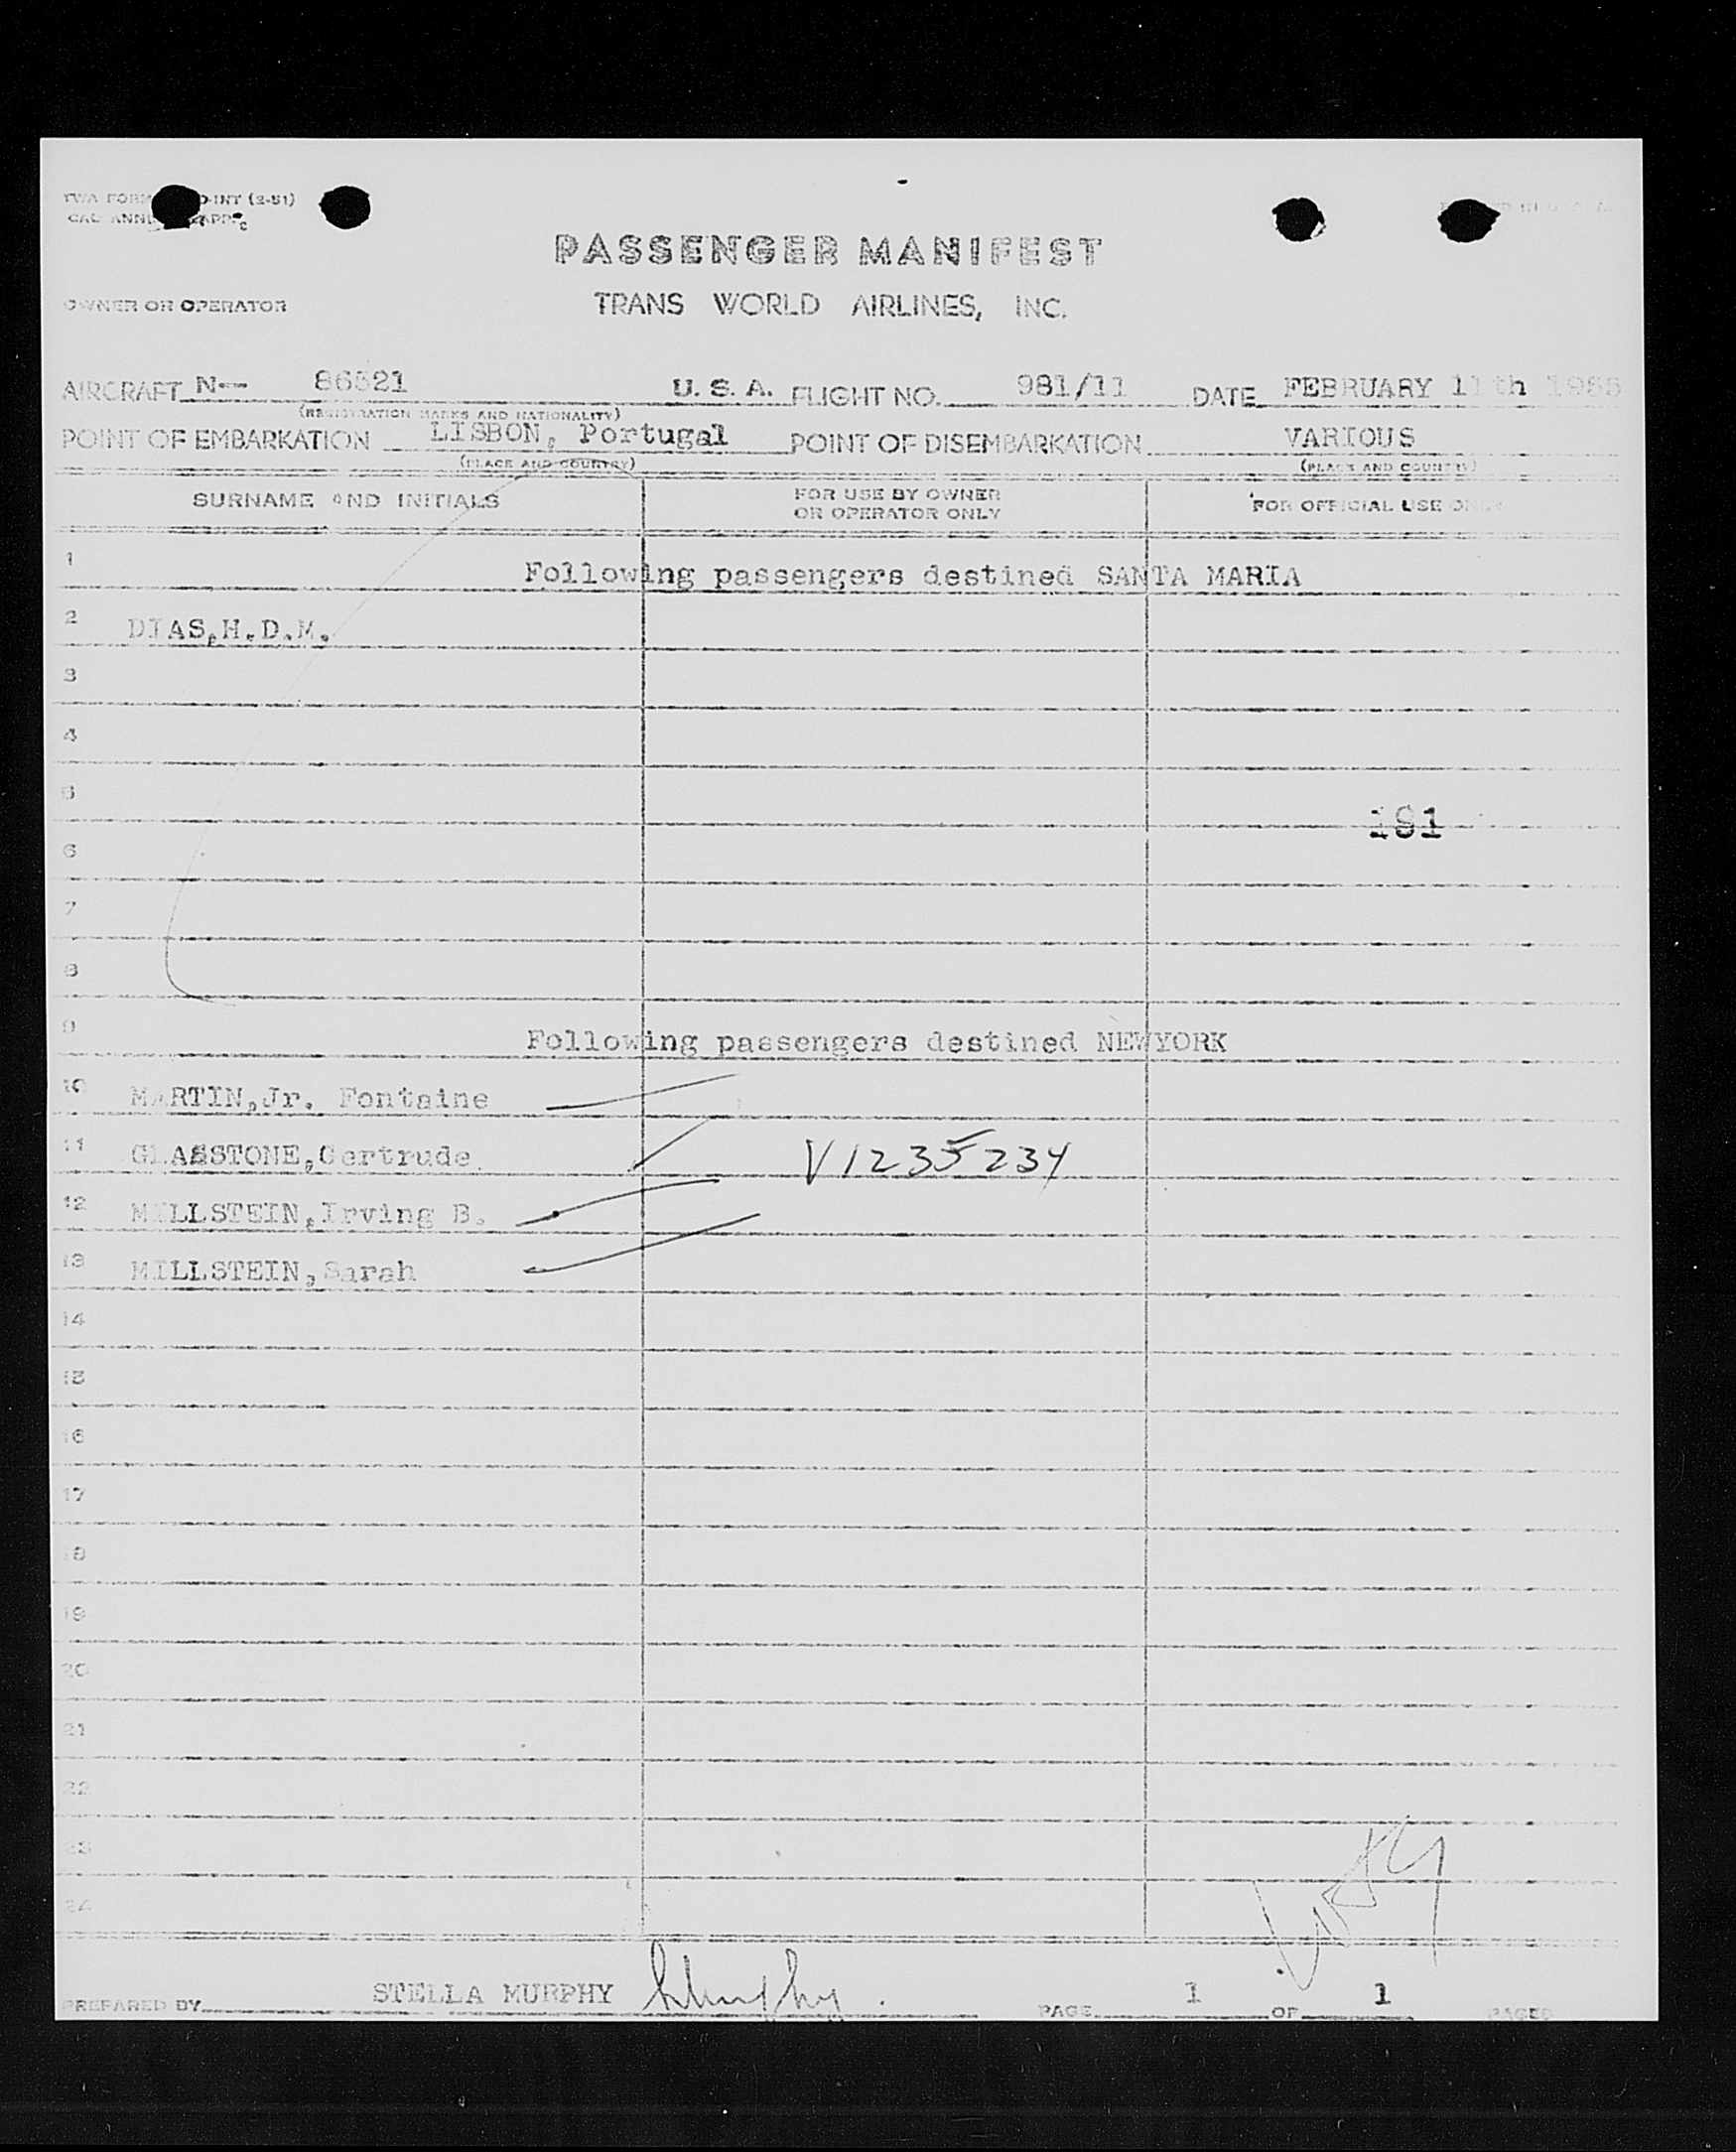 PASSENGER MANIFEST
OWNER OR OPERATOR TRANS WORLD AIRLINES, INC.
AIRCRAFT N-- 86521 U. S. A. FLIGHT NO. 981/11 DATE FEBRUARY 11th
(REGISTRATION MARKS AND NATIONALITY)
POINT OF EMBARKATION LISBON, Portugal POINT OF DISEMBARKATION VARIOUS
(PLACE AND COUNTRY) (PLACE AND COUNTRY)
SURNAME AND INITIALS FOR USE BY OWNER OR OPERATOR ONLY FOR OFFICIAL USE ONLY
1 Following passengers destined SANTA MARIA
2 DIAS,H.D.M.
3
4
5
191
6
7
8
9 Following passengers destined NEWYORK
10 MARTIN,Jr. Fontaine
11 GLASSTONE,Gertrude V1235234
12 MILLSTEIN,Irving B.
13 MILLSTEIN,Sarah
14
15
16
17
18
19
20
21
22
23
24
PREPARED BY STELLA MURPHY PAGE 1 OF 1 PAGES